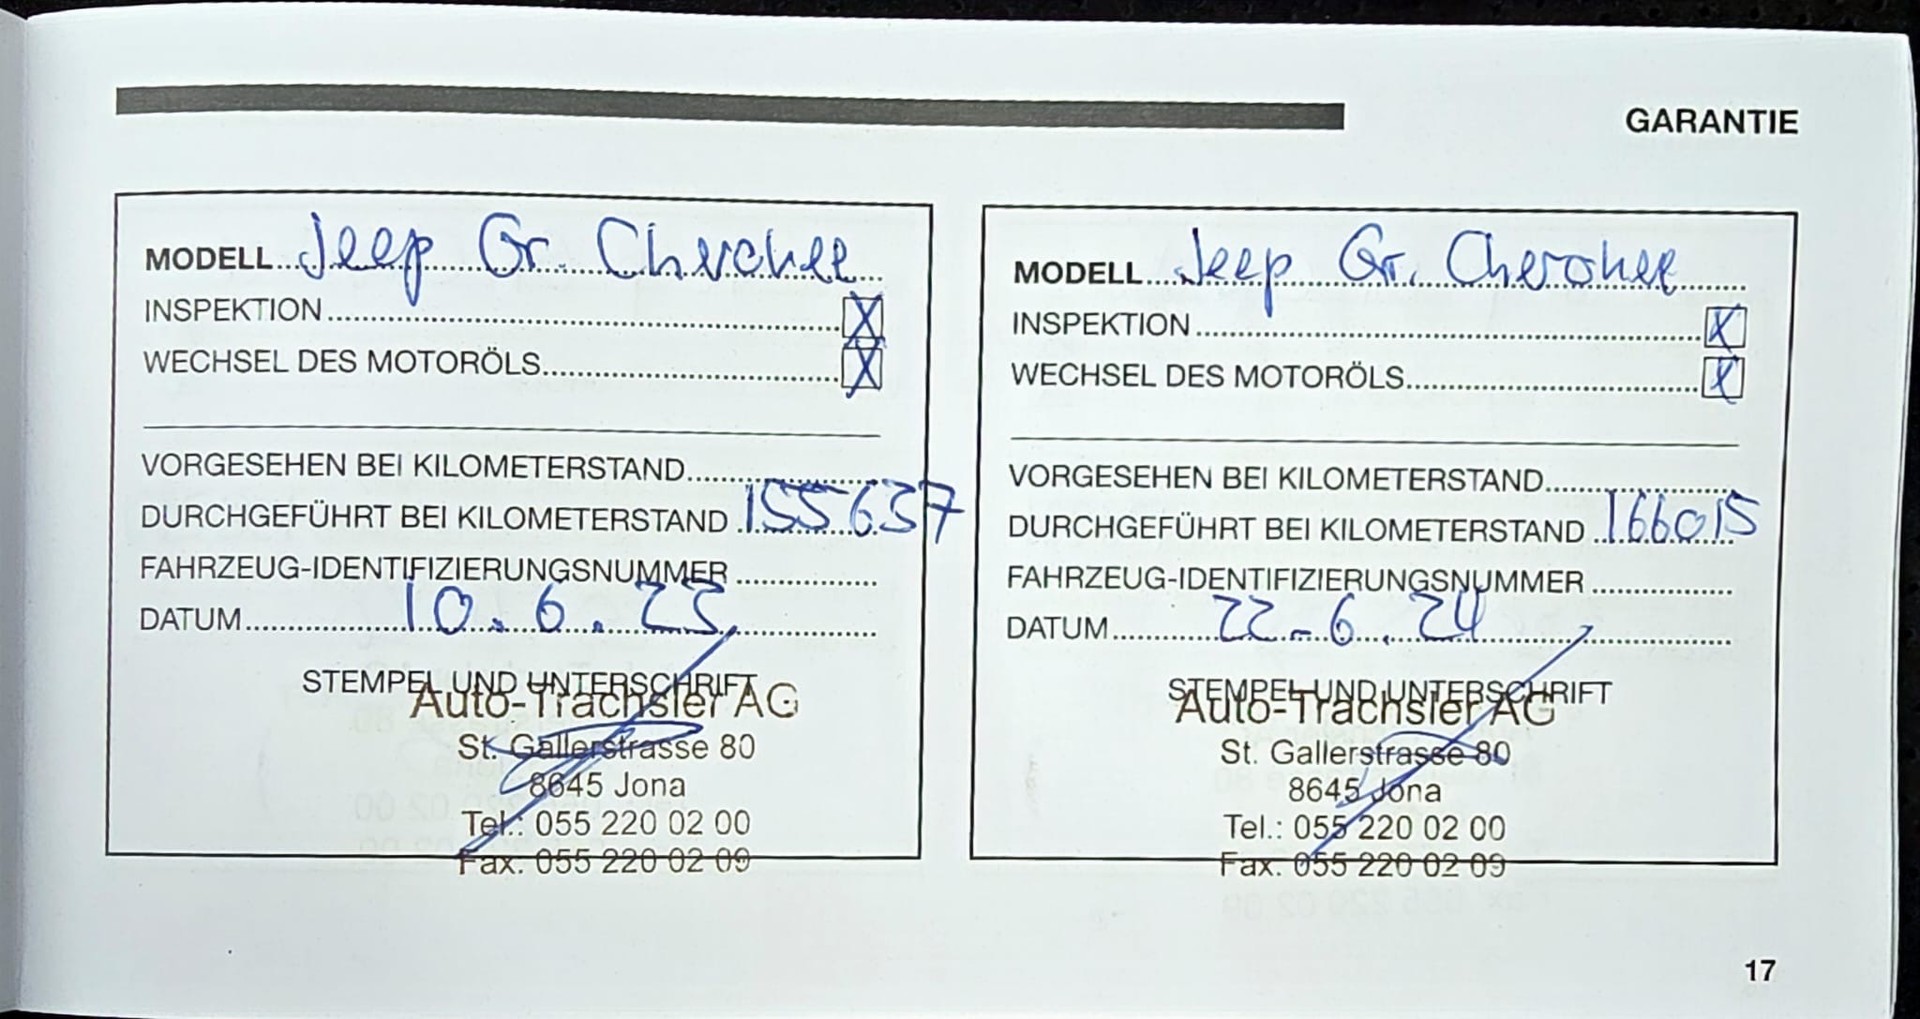 GARANTIE
MODELL Jeep Gr. Cherokee
INSPEKTION X
WECHSEL DES MOTORÖLS X
VORGESEHEN BEI KILOMETERSTAND
DURCHGEFÜHRT BEI KILOMETERSTAND 155637
FAHRZEUG-IDENTIFIZIERUNGSNUMMER
DATUM 10.6.23
STEMPEL UND UNTERSCHRIFT
Auto-Trachsler AG
St. Gallerstrasse 80
8645 Jona
Tel.: 055 220 02 00
Fax. 055 220 02 09
MODELL Jeep Gr. Cherokee
INSPEKTION X
WECHSEL DES MOTORÖLS X
VORGESEHEN BEI KILOMETERSTAND
DURCHGEFÜHRT BEI KILOMETERSTAND 166015
FAHRZEUG-IDENTIFIZIERUNGSNUMMER
DATUM 22-6.24
STEMPEL UND UNTERSCHRIFT
Auto-Trachsler AG
St. Gallerstrasse 80
8645 Jona
Tel.: 055 220 02 00
Fax. 055 220 02 09
17